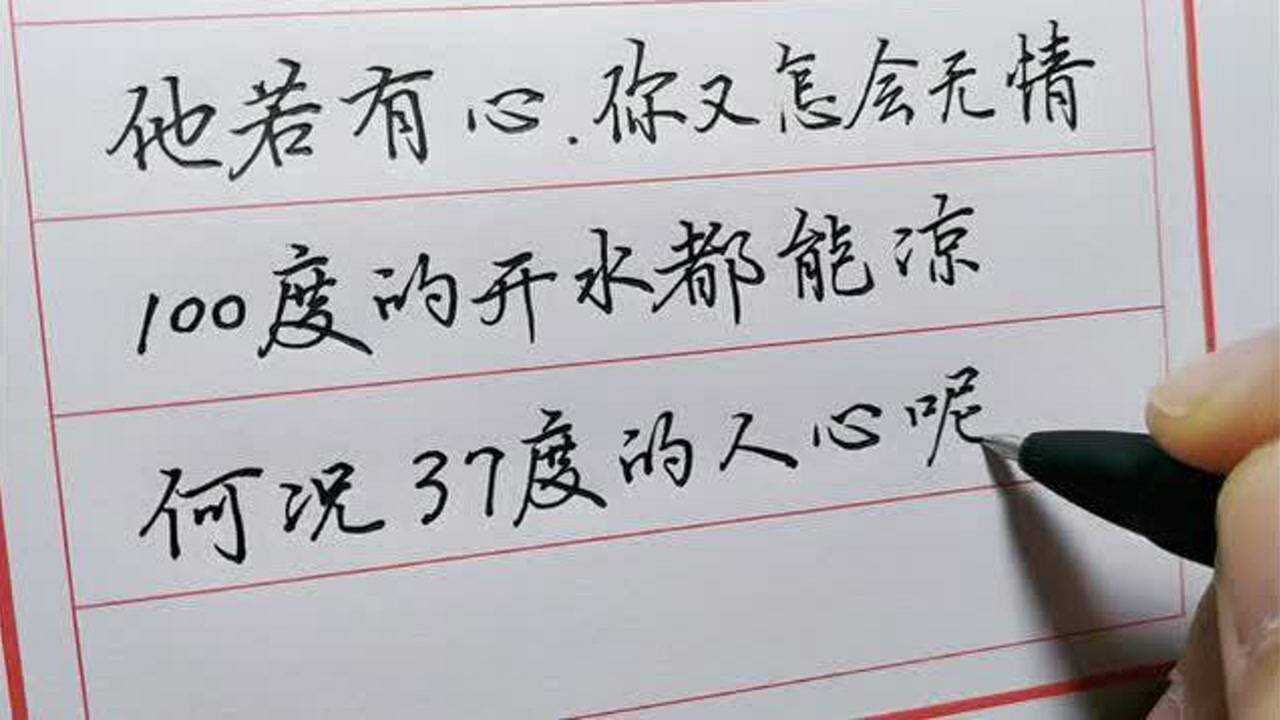 他若有心.你又怎会无情
100度的开水都能凉
何况37度的人心呢